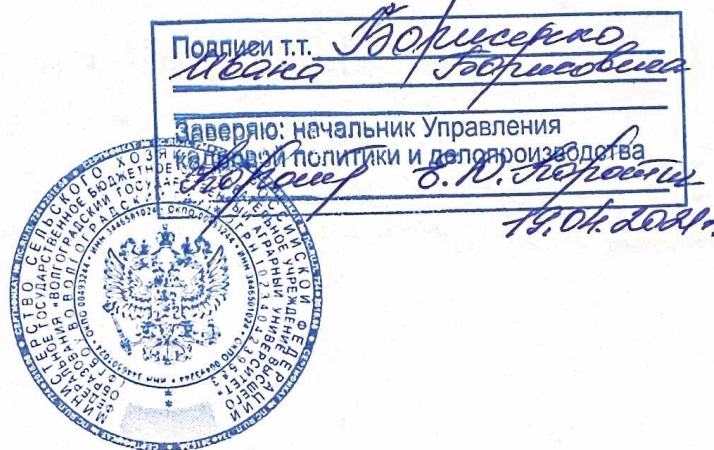 Подписи т.т. Борисенко
Ивана Борисовича
Заверяю: начальник Управления
кадровой политики и делопроизводства
Е.Ю. Коротич
19.04.2021г.
МИНИСТЕРСТВО СЕЛЬСКОГО ХОЗЯЙСТВА РОССИЙСКОЙ ФЕДЕРАЦИИ
ФЕДЕРАЛЬНОЕ ГОСУДАРСТВЕННОЕ БЮДЖЕТНОЕ ОБРАЗОВАТЕЛЬНОЕ УЧРЕЖДЕНИЕ ВЫСШЕГО
ОБРАЗОВАНИЯ «ВОЛГОГРАДСКИЙ ГОСУДАРСТВЕННЫЙ АГРАРНЫЙ УНИВЕРСИТЕТ»
ОКПО 00493244 • ИНН 3446501024